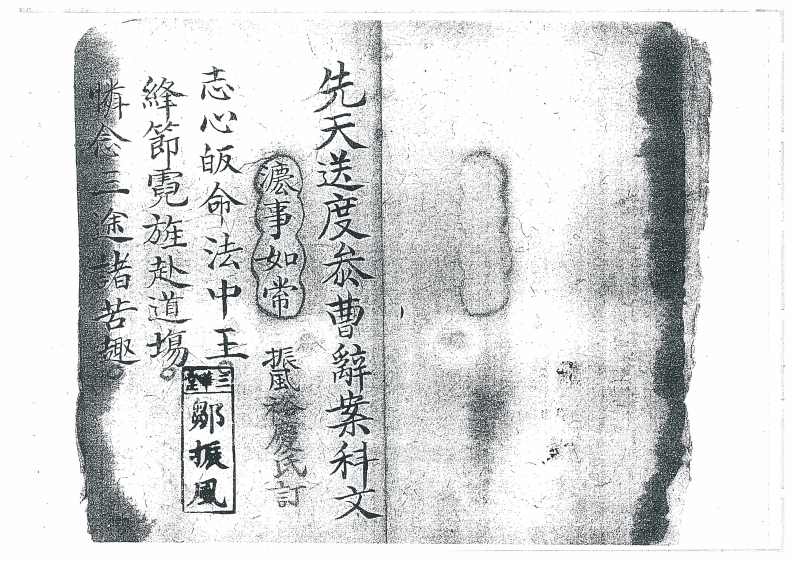 先天送度叅曹辭案科文
灋事如常
振風裕慶氏訂
志心皈命法中王
三
鄒振風
絳節霓旌赴道場
憐念三途諸苦趣